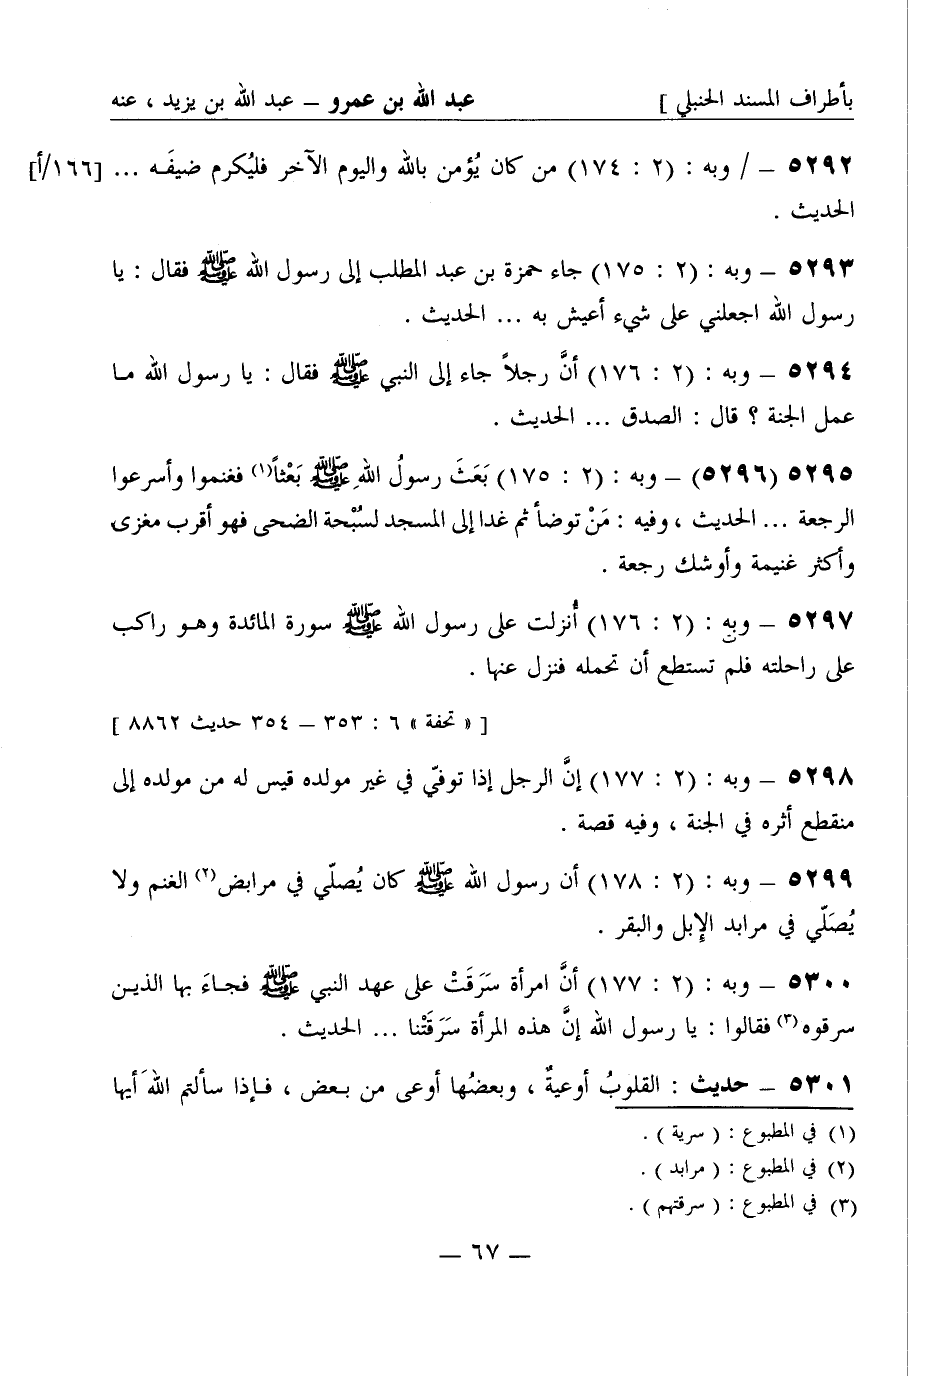 بأطراف المسند الحنبلي ] عبد الله بن عمرو – عبد الله بن يزيد ، عنه
٥٢٩٢ – / وبه : (٢ : ١٧٤) من كان يُؤمن بالله واليوم الآخر فليُكرم ضيفَـه ... [١٦٦/أ]
الحديث .
٥٢٩٣ – وبه : (٢ : ١٧٥) جاء حمزة بن عبد المطلب إلى رسول الله ﷺ فقال : يا
رسول الله اجعلني على شيء أعيش به ... الحديث .
٥٢٩٤ – وبه : (٢ : ١٧٦) أنَّ رجلاً جاء إلى النبي ﷺ فقال : يا رسول الله مـا
عمل الجنة ؟ قال : الصدق ... الحديث .
٥٢٩٥ (٥٢٩٦) – وبه : (٢ : ١٧٥) بَعَثَ رسولُ اللهِ ﷺ بَعْثاً(١) فغنموا وأسرعوا
الرجعة ... الحديث ، وفيه : مَنْ توضأ ثم غدا إلى المسجد لسُبْحة الضحى فهو أقرب مغزى
وأكثر غنيمة وأوشك رجعة .
٥٢٩٧ – وبه : (٢ : ١٧٦) أُنزلت على رسول الله ﷺ سورة المائدة وهـو راكب
على راحلته فلم تستطع أن تحمله فنزل عنها .
[ « تحفة » ٦ : ٣٥٣ – ٣٥٤ حديث ٨٨٦٢ ]
٥٢٩٨ – وبه : (٢ : ١٧٧) إنَّ الرجل إذا توفيّ في غير مولده قيس له من مولده إلى
منقطع أثره في الجنة ، وفيه قصة .
٥٢٩٩ – وبه : (٢ : ١٧٨) أن رسول الله ﷺ كان يُصلّي في مرابض(٢) الغنم ولا
يُصَلّي في مرابد الإبل والبقر .
٥٣٠٠ – وبه : (٢ : ١٧٧) أنَّ امرأة سَرَقَتْ على عهد النبي ﷺ فجـاءَ بها الذيـن
سرقوه(٣) فقالوا : يا رسول الله إنَّ هذه المرأة سَرَقَتْنا ... الحديث .
٥٣٠١ – حديث : القلوبُ أوعيةٌ ، وبعضُها أوعى من بـعض ، فـإذا سألتم اللهَ أيها
(١) في المطبوع : ( سرية ) .
(٢) في المطبوع : ( مرابد ) .
(٣) في المطبوع : ( سرقتهم ) .
– ٦٧ –